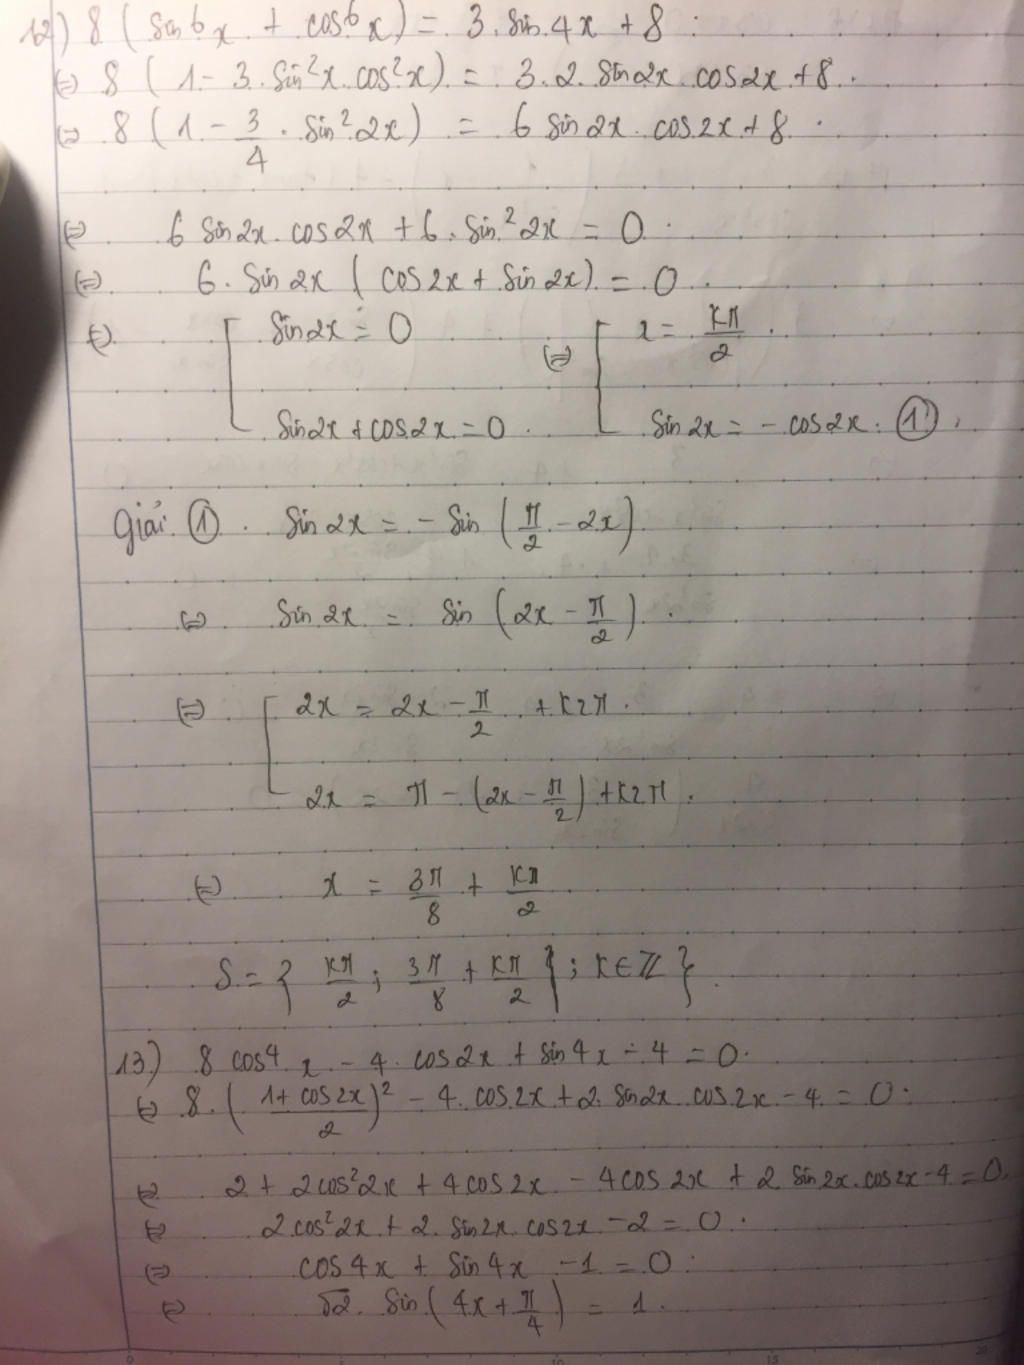 12) 8 ( sin⁶x + cos⁶x ) = 3. sin 4x + 8 .
⇔ 8 ( 1 - 3. sin²x. cos²x ) = 3. 2. sin2x. cos2x + 8 .
⇔ 8 ( 1 - 3/4 . sin² 2x ) = 6 sin2x. cos2x + 8 .
⇔ 6 sin2x. cos2x + 6. sin² 2x = 0 .
⇔ 6. sin2x ( cos2x + sin2x ) = 0 .
⇔ [ sin2x = 0 ⇔ [ x = kπ/2 .
sin2x + cos2x = 0 . sin2x = - cos2x . ① .
Giải ① . sin 2x = - sin ( π/2 - 2x )
⇔ sin 2x = sin ( 2x - π/2 ) .
⇔ [ 2x = 2x - π/2 + k2π .
2x = π - ( 2x - π/2 ) + k2π .
⇔ x = 3π/8 + kπ/2
S = { kπ/2 ; 3π/8 + kπ/2 } ; k ∈ Z } .
13) 8 cos⁴ x - 4. cos2x + sin4x - 4 = 0 .
⇔ 8. ( (1 + cos2x)/2 )² - 4. cos2x + 2. sin2x. cos2x - 4 = 0 .
⇔ 2 + 2cos²2x + 4cos2x - 4cos2x + 2 sin2x. cos2x - 4 = 0.
⇔ 2.cos²2x + 2. sin2x. cos2x - 2 = 0 .
⇔ cos4x + sin4x - 1 = 0 .
⇔ √2. sin ( 4x + π/4 ) = 1 .